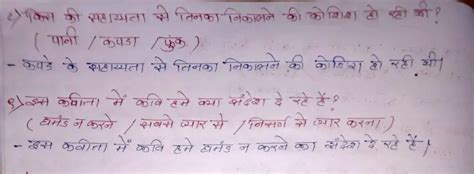 ८) किस की सहाय्यता से तिनका निकालने की कोशिश हो रही थी?
( पानी / कपडा / फुंक )
- कपडे के सहाय्यता से तिनका निकालने की कोशिश हो रही थी।
९) इस कविता में कवि हमे क्या संदेश दे रहे हैं?
( घमंड न करने / सबसे प्यार से / निसर्ग से प्यार करना )
- इस कवीता में कवि हमे घमंड न करने का संदेश दे रहे हैं।